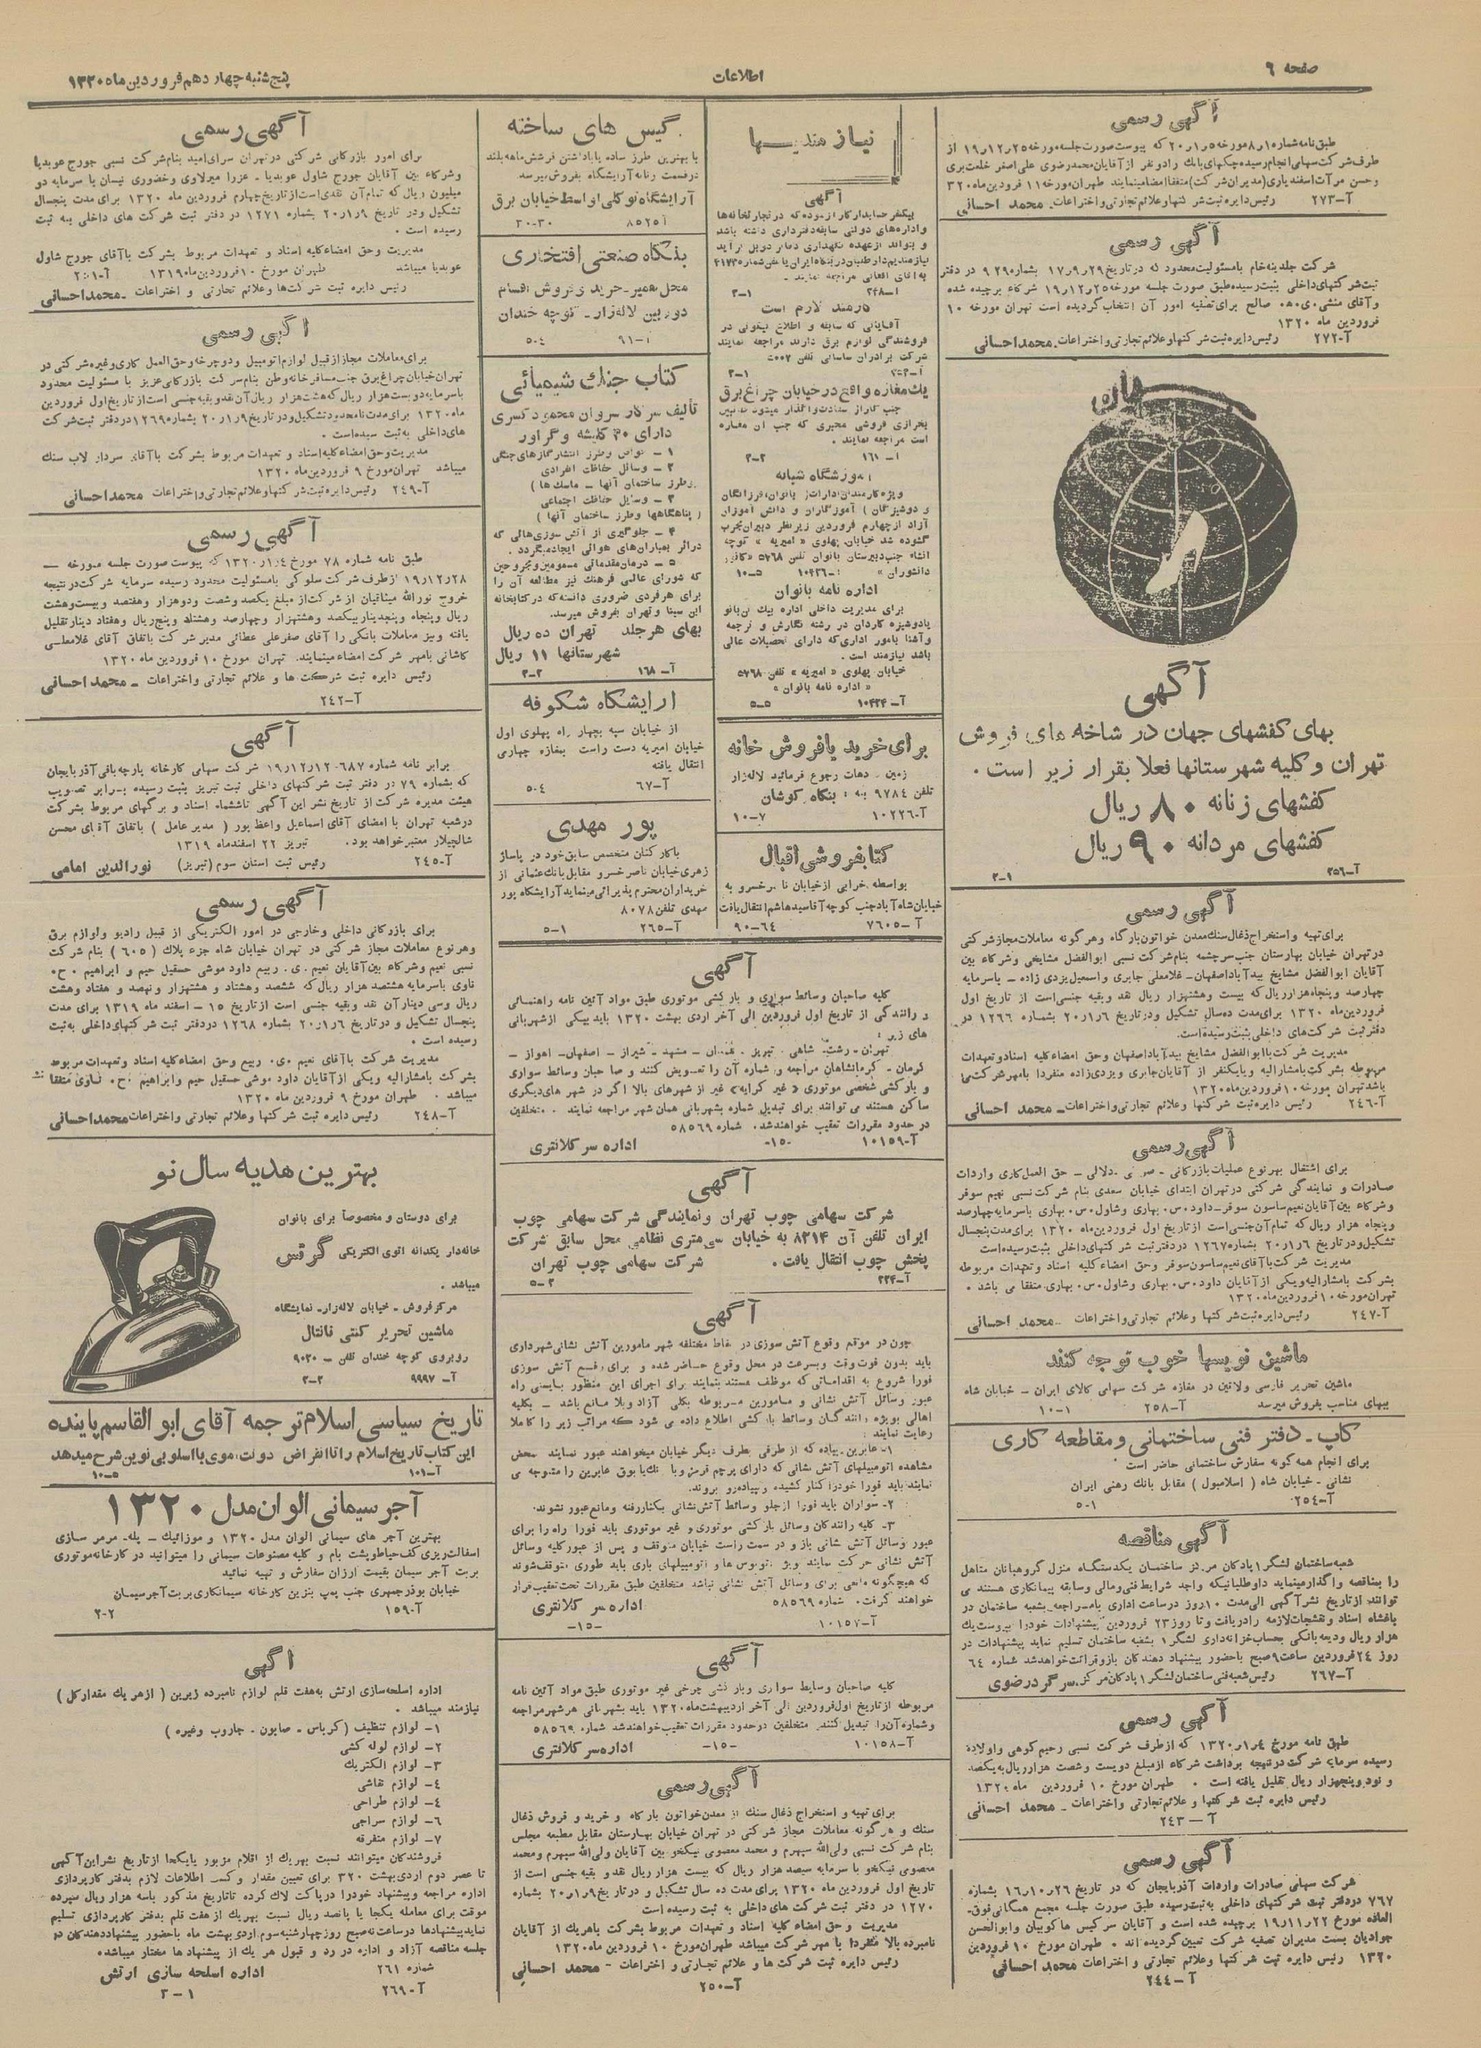 صفحه ۶
اطلاعات
پنج‌شنبه چهاردهم فروردین ماه ۱۳۲۰
آگهی رسمی
طبق نامه شماره ۸ر۱ مورخه ۵ر۱ر۲۰ که پیوست صورت جلسه مورخه ۲۵ر۱۲ر۱۹ از
طرف شرکت سهامی انجام رسیده چکهای بانک را دو نفر از آقایان محمد رضوی علی اصغر خلعت بری
و حسن مرآت اسفندیاری (مدیران شرکت) متفقا امضا مینمایند طهران مورخه ۱۱ فروردین ماه ۳۲۰
آ-۲۷۳ رئیس دایره ثبت شرکتها و علائم تجارتی و اختراعات . محمد احسانی
آگهی رسمی
شرکت جلدینه خام با مسئولیت محدود که در تاریخ ۲۹ر۹ر۱۷ بشماره ۹۲۹ در دفتر
ثبت شرکتهای داخلی بثبت رسیده طبق صورت جلسه مورخه ۲۵ر۱۲ر۱۹ شرکاء برچیده شده
و آقای منشی ی.ه. صالح برای تصفیه امور آن انتخاب گردیده است تهران مورخه ۱۰
فروردین ماه ۱۳۲۰
آ-۲۷۲ رئیس دایره ثبت شرکتها و علائم تجارتی و اختراعات. محمد احسانی
جهان
آگهی
بهای کفشهای جهان در شاخه های فروش
تهران و کلیه شهرستانها فعلا بقرار زیر است .
کفشهای زنانه ۸۰ ریال
کفشهای مردانه ۹۰ ریال
آ-۲۵۶ ۱-۲
آگهی رسمی
برای تهیه و استخراج ذغال سنگ معدن خواتون بارگاه و هر گونه معاملات مجاز شرکتی
در تهران خیابان بهارستان جنب سرچشمه بنام شرکت نسبی ابوالفضل مشایخی و شرکاء بین
آقایان ابوالفضل مشایخ بیدآباد اصفهان- غلامعلی جابری و اسمعیل یزدی زاده - با سرمایه
چهارصد و پنجاه هزار ریال که بیست و هشتهزار ریال نقد و بقیه جنسی است از تاریخ اول
فروردین ماه ۱۳۲۰ برای مدت ده سال تشکیل و در تاریخ ۶ر۱ر۲۰ بشماره ۱۲۶۶ در
دفتر ثبت شرکت های داخلی بثبت رسیده است.
مدیریت شرکت با ابوالفضل مشایخ بیدآباد اصفهان و حق امضاء کلیه اسناد و تعهدات
مربوطه بشرکت بامشارالیه و یا یکنفر از آقایان جابری و یزدی زاده منفردا با مهر شرکت می
باشد تهران مورخه ۱۰ فروردین ماه ۱۳۲۰
آ-۲۴۶ رئیس دایره ثبت شرکتها و علائم تجارتی و اختراعات - محمد احسانی
آگهی رسمی
برای اشتغال بهر نوع عملیات بازرگانی - صرافی - دلالی - حق العمل کاری واردات
صادرات و نمایندگی شرکتی در تهران ابتدای خیابان سعدی بنام شرکت نسبی نعیم سوفر
و شرکاء بین آقایان نعیم ساسون سوفر - داود .س. بهاری و شاول .س. بهاری با سرمایه چهارصد
و پنجاه هزار ریال که تمام آن جنسی است از تاریخ اول فروردین ماه ۱۳۲۰ برای مدت پنجسال
تشکیل و در تاریخ ۶ر۱ر۲۰ بشماره ۱۲۶۷ در دفتر ثبت شرکتهای داخلی بثبت رسیده است
مدیریت شرکت با آقای نعیم ساسون سوفر و حق امضاء کلیه اسناد و تعهدات مربوطه
بشرکت بامشارالیه و یکی از آقایان داود .س. بهاری و شاول .س. بهاری متفقا می باشد .
تهران مورخه ۱۰ فروردین ماه ۱۳۲۰
آ-۲۴۷ رئیس دایره ثبت شرکتها و علائم تجارتی و اختراعات -. محمد احسانی
ماشین نویسها خوب توجه کنند
ماشین تحریر فارسی ولاتین در مغازه شرکت سهامی کالای ایران - خیابان شاه
ببهای مناسب بفروش میرسد آ-۲۵۸ ۱-۱۰
کاپ - دفتر فنی ساختمانی و مقاطعه کاری
برای انجام همه گونه سفارش ساختمانی حاضر است
نشانی - خیابان شاه ( اسلامبول ) مقابل بانک رهنی ایران
آ-۲۵۴ ۱-۵
آگهی مناقصه
شعبه ساختمان لشگر ۱ پادگان مرکز ساختمان یکدستگاه منزل گروهبانان متاهل
را بمناقصه واگذار مینماید داوطلبانیکه واجد شرایط فنی و مالی و سابقه پیمانکاری هستند می
توانند از تاریخ نشر آگهی الی مدت ۱۰ روز در ساعت اداری با مراجعه بشعبه ساختمان در
باغشاه اسناد و نقشجات لازمه را دریافت و تا روز ۲۳ فروردین پیشنهادات خود را بپیوست یک
هزار ریال ودیعه بانکی بحساب خزانه داری لشگر ۱ بشعبه ساختمان تسلیم نماید پیشنهادات در
روز ۲۴ فروردین ساعت ۹ صبح با حضور پیشنهاد دهندگان باز و قرائت خواهد شد شماره ۶۴
آ-۲۶۷ رئیس شعبه فنی ساختمان لشگر ۱ پادگان مرکز. سرگرد رضوی
آگهی رسمی
طبق نامه مورخ ۴ر۱ر۱۳۲۰ که از طرف شرکت نسبی رحیم کوهی و اولاده
رسیده سرمایه شرکت در نتیجه برداشت شرکاء از مبلغ دویست و شصت هزار ریال به یکصد
و نود و پنجهزار ریال تقلیل یافته است . طهران مورخ ۱۰ فروردین ماه ۱۳۲۰
رئیس دایره ثبت شرکتها و علائم تجارتی و اختراعات - محمد احسانی
آ - ۲۴۳
آگهی رسمی
شرکت سهامی صادرات واردات آذربایجان که در تاریخ ۲۶ر۱۰ر۱۶ بشماره
۷۶۷ در دفتر ثبت شرکتهای داخلی به ثبت رسیده طبق صورت جلسه مجمع همگانی فوق-
العاده مورخ ۲۲ر۱۱ر۱۹ برچیده شده است و آقایان سرکیس هاکوپیان و ابوالحسن
جوادیان بسمت مدیران تصفیه شرکت تعیین گردیده اند . طهران مورخ ۱۰ فروردین
۱۳۲۰ رئیس دایره ثبت شرکتها و علائم تجارتی و اختراعات محمد احسانی
آ - ۲۴۴
نیازمندیها
آگهی
بیکنفر حسابدار کارآزموده که در تجارتخانه ها
و اداره های دولتی سابقه دفترداری داشته باشد
و بتواند از عهده نگهداری دفاتر دوبل برآید
نیازمندیم داوطلبان در بنگاه ایران یا تلفن شماره ۴۱۷۳
به آقای افغانی مراجعه نمایند .
آ-۲۴۸ ۱-۳
کارمند لازم است
آقایانی که سابقه و اطلاع نیکوئی در
فروشندگی لوازم برق دارند مراجعه نمایند
شرکت برادران ساسانی تلفن ۵۰۰۷
۱-۳
یک مغازه واقع در خیابان چراغ برق
بخرازی فروشی مجیری که جنب آن مغازه
است مراجعه نمایند .
آ- ۱۶۱ ۲-۳
آموزشگاه شبانه
ویژه کارمندان ادارات ( بانوان، فرزانگان
و دوشیزگان ) آموزگاران و دانش آموزان
آزاد از چهارم فروردین زیر نظر دبیران مجرب
گشوده شد خیابان پهلوی « امیریه » کوچه
انشاء جنب دبیرستان بانوان تلفن ۵۷۶۸ «کانون
دانشوران » آ-۱۰۴۳۶ ۵-۱۰
اداره نامه بانوان
برای مدیریت داخلی اداره بیک تن بانو
یا دوشیزه کاردان در رشته نگارش و ترجمه
و آشنا بامور اداری که دارای تحصیلات عالی
باشد نیازمند است .
خیابان پهلوی « امیریه » تلفن ۵۷۶۸
« اداره نامه بانوان »
آ- ۱۰۴۳۴ ۵-۵
برای خرید یا فروش خانه
زمین - دهات رجوع فرمائید لاله زار
تلفن ۹۷۸۴ به : بنگاه کوشان
آ-۱۰۲۲۶ ۷-۱۰
کتابفروشی اقبال
بواسطه خرابی از خیابان ناصرخسرو به
خیابان شاه آباد جنب کوچه آقا سید هاشم انتقال یافت
آ-۷۶۰۵ ۶۴-۹۰
گیس های ساخته
با بهترین طرز ساده یا با داشتن فرششماهه بلند
در قسمت زنانه آرایشگاه بفروش میرسد
آرایشگاه توکلی اواسط خیابان برق
آ ۸۵۲۵ ۳۰-۳۰
بنگاه صنعتی افتخاری
محل تعمیر - خرید و فروش اقسام
دوربین لاله زار - کوچه خندان
آ-۶۱ ۴-۵
کتاب جنگ شیمیائی
تألیف سرکار سروان محمود کسری
دارای ۳۰ کلیشه و گراور
۱ - خواص و طرز انتشار گازهای جنگی
۲ - وسائل حفاظت انفرادی
(و طرز ساختمان آنها - ماسک ها )
۳ - وسایل حفاظت اجتماعی
( پناهگاهها و طرز ساختمان آنها )
۴ - جلوگیری از آتش سوزی هائی که
در اثر بمباران های هوائی ایجاد میگردد .
۵ - درمان مقدماتی مسمومین و مجروحین
که شورای عالی فرهنگ نیز مطالعه آن را
برای هر فردی ضروری دانسته که در کتابخانه
ابن سینا و تهران بفروش میرسد.
بهای هر جلد تهران ده ریال
شهرستانها ۱۱ ریال
آ- ۱۶۸ ۲-۳
آرایشگاه شکوفه
از خیابان سپه بچهار راه پهلوی اول
خیابان امیریه دست راست بمغازه چهارمی
انتقال یافته
آ-۶۷ ۴-۵
پور مهدی
با کارکنان متخصص سابق خود در پاساژ
زهری خیابان ناصر خسرو مقابل بانک عثمانی از
خریداران محترم پذیرائی مینماید آرایشگاه پور
مهدی تلفن ۸۰۷۸
آ-۲۶۵ ۱-۵
آگهی
کلیه صاحبان وسائط سواری و بارکشی موتوری طبق مواد آئین نامه راهنمائی
و رانندگی از تاریخ اول فروردین الی آخر اردی بهشت ۱۳۲۰ باید بیکی از شهربانی
های زیر :
تهران- رشت- شاهی - تبریز - همدان - مشهد - شیراز - اصفهان- اهواز -
کرمان - کرمانشاهان مراجعه و شماره آن را تعویض کنند و صاحبان وسائط سواری
و بارکشی شخصی موتوری « غیر کرایه» غیر از شهرهای بالا اگر در شهرهای دیگری
ساکن هستند می توانند برای تبدیل شماره بشهربانی همان شهر مراجعه نمایند . متخلفین
در حدود مقررات تعقیب خواهند شد. شماره ۵۸۵۶۹
آ-۱۰۱۵۹ -۱۵- اداره سرکلانتری
آگهی
شرکت سهامی چوب تهران و نمایندگی شرکت سهامی چوب
ایران تلفن آن ۸۳۱۴ به خیابان سی متری نظامی محل سابق شرکت
پخش چوب انتقال یافت . شرکت سهامی چوب تهران
آ-۲۲۴ ۲-۵
آگهی
چون در موقع وقوع آتش سوزی در نقاط مختلفه شهر مامورین آتش نشانی شهرداری
باید بدون فوت وقت و بسرعت در محل وقوع حاضر شده و برای رفع آتش سوزی
فورا شروع به اقداماتی که موظف هستند بنمایند برای اجرای این منظور بایستی راه
عبور وسائل آتش نشانی و مامورین مربوطه بکلی آزاد و بلا مانع باشد - بکلیه
اهالی بویژه رانندگان وسائط بارکشی اطلاع داده می شود که مراتب زیر را کاملا
رعایت نمایند :
۱- عابرین پیاده که از طرفی بطرف دیگر خیابان میخواهند عبور نمایند بمحض
مشاهده اتومبیلهای آتش نشانی که دارای پرچم قرمز و با زنگ یا بوق عابرین را متوجه می
نمایند باید فورا خود را کنار کشیده و بپیاده رو بروند.
۲- سواران باید فورا از جلو وسائط آتش نشانی بکنار رفته و مانع عبور نشوند.
۳- کلیه رانندگان وسائل بارکشی موتوری و غیر موتوری باید فورا راه را برای
عبور وسائل آتش نشانی باز و در سمت راست خیابان متوقف و پس از عبور کلیه وسائل
آتش نشانی حرکت نمایند و بویژه اتوبوس ها و اتومبیلهای باری باید طوری متوقف شوند
که هیچگونه مانعی برای وسائل آتش نشانی نباشد متخلفین طبق مقررات تحت تعقیب قرار
خواهند گرفت . شماره ۵۸۵۶۹ اداره سرکلانتری
آ-۱۰۱۵۷ -۱۵-
آگهی
کلیه صاحبان وسایط سواری و بارکشی چرخی غیر موتوری طبق مواد آئین نامه
مربوطه از تاریخ اول فروردین الی آخر اردیبهشت ماه ۱۳۲۰ باید بشهربانی هر شهر مراجعه
و شماره آن را تبدیل کنند. متخلفین در حدود مقررات تعقیب خواهند شد شماره ۵۸۵۶۹
آ-۱۰۱۵۸ -۱۵- اداره سرکلانتری
آگهی رسمی
برای تهیه و استخراج ذغال سنگ از معدن خواتون بارگاه و خرید و فروش ذغال
سنگ و هرگونه معاملات مجاز شرکتی در تهران خیابان بهارستان مقابل مطبعه مجلس
بنام شرکت نسبی ولی الله سپهرم و محمد معصومی نیکخو بین آقایان ولی الله سپهرم و محمد
معصومی نیکخو با سرمایه سیصد هزار ریال که بیست هزار ریال نقد و بقیه جنسی است از
تاریخ اول فروردین ماه ۱۳۲۰ برای مدت ده سال تشکیل و در تاریخ ۹ر۱ر۲۰ بشماره
۱۲۷۰ در دفتر ثبت شرکت های داخلی به ثبت رسیده است
مدیریت و حق امضاء کلیه اسناد و تعهدات مربوط بشرکت باهریک از آقایان
نامبرده بالا منفردا با مهر شرکت میباشد طهران مورخ ۱۰ فروردین ماه ۱۳۲۰
رئیس دایره ثبت شرکت ها و علائم تجارتی و اختراعات - محمد احسانی
آ-۲۵۰
آگهی رسمی
برای امور بازرگانی شرکتی در تهران سرای امید بنام شرکت نسبی جورج عوبدیا
و شرکاء بین آقایان جورج شاول عوبدیا - عزرا میرلاوی و خضوری نیسان با سرمایه دو
میلیون ریال که تمام آن نقدی است از تاریخ چهارم فروردین ماه ۱۳۲۰ برای مدت پنجسال
تشکیل و در تاریخ ۹ر۱ر۲۰ بشماره ۱۲۷۱ در دفتر ثبت شرکت های داخلی به ثبت
رسیده است .
مدیریت و حق امضاء کلیه اسناد و تعهدات مربوط بشرکت با آقای جورج شاول
عوبدیا میباشد طهران مورخ ۱۰ فروردین ماه ۱۳۱۹ آ-۲۵۱
رئیس دایره ثبت شرکت ها و علائم تجارتی و اختراعات - محمد احسانی
آگهی رسمی
برای معاملات مجاز از قبیل لوازم اتومبیل و دوچرخه و حق العمل کاری و غیره شرکتی در
تهران خیابان چراغ برق جنب مسافرخانه وطن بنام شرکت بازرگانی عزیز با مسئولیت محدود
با سرمایه دویست هزار ریال که هشت هزار ریال آن نقد و بقیه جنسی است از تاریخ اول فروردین
ماه ۱۳۲۰ برای مدت نامحدود تشکیل و در تاریخ ۹ر۱ر۲۰ بشماره ۱۲۶۹ در دفتر ثبت شرکت
های داخلی به ثبت رسیده است .
مدیریت و حق امضاء کلیه اسناد و تعهدات مربوط بشرکت با آقای سردار لاب سنگ
میباشد تهران مورخ ۹ فروردین ماه ۱۳۲۰
آ-۲۴۹ رئیس دایره ثبت شرکتها و علائم تجارتی و اختراعات محمد احسانی
آگهی رسمی
طبق نامه شماره ۷۸ مورخ ۴ر۱ر۱۳۲۰ که پیوست صورت جلسه مورخه -
۲۸ر۱۲ر۱۹ از طرف شرکت سلوکی با مسئولیت محدود رسیده سرمایه شرکت در نتیجه
خروج نورالله میثاقیان از شرکت از مبلغ یکصد و شصت و دو هزار و هفتصد و بیست و هشت
ریال و پنجاه و پنجدینار بیکصد و هشتهزار و چهارصد و هشتاد و پنج ریال و هفتاد دینار تقلیل
یافته و نیز معاملات بانکی را آقای صفر علی عطائی مدیر شرکت باتفاق آقای غلامعلی
کاشانی با مهر شرکت امضاء مینمایند. تهران مورخ ۱۰ فروردین ماه ۱۳۲۰
رئیس دایره ثبت شرکت ها و علائم تجارتی و اختراعات - محمد احسانی
آ-۲۴۲
آگهی
برابر نامه شماره ۶۸۷-۱۲ر۱۲ر۱۹ شرکت سهامی کارخانه پارچه بافی آذربایجان
که بشماره ۷۹ در دفتر ثبت شرکتهای داخلی ثبت تبریز بثبت رسیده برابر تصویب
هیئت مدیره شرکت از تاریخ نشر این آگهی تا ششماه اسناد و برگهای مربوط بشرکت
در شعبه تهران با امضای آقای اسماعیل واعظ پور ( مدیر عامل ) باتفاق آقای محسن
شالچیلار معتبر خواهد بود. تبریز ۲۲ اسفندماه ۱۳۱۹
آ-۲۴۵ رئیس ثبت استان سوم (تبریز) نورالدین امامی
آگهی رسمی
برای بازرگانی داخلی و خارجی در امور الکتریکی از قبیل رادیو و لوازم برق
و هر نوع معاملات مجاز شرکتی در تهران خیابان شاه جزء پلاک (۶۰۵) بنام شرکت
نسبی نعیم و شرکاء بین آقایان نعیم .ی. ربیع داود موشی حسقیل حیم و ابراهیم .ح.
ناوی با سرمایه هشتصد هزار ریال که ششصد و هشتاد و هشتهزار و نهصد و هفتاد و هشت
ریال و سی دینار آن نقد و بقیه جنسی است از تاریخ ۱۵ - اسفند ماه ۱۳۱۹ برای مدت
پنجسال تشکیل و در تاریخ ۶ر۱ر۲۰ بشماره ۱۲۶۸ در دفتر ثبت شرکتهای داخلی به ثبت
رسیده است .
مدیریت شرکت با آقای نعیم .ی. ربیع و حق امضاء کلیه اسناد و تعهدات مربوط
بشرکت بامشارالیه و یکی از آقایان داود موشی حسقیل حیم و ابراهیم .ح. ناوی متفقا
میباشد . طهران مورخ ۹ فروردین ماه ۱۳۲۰
آ-۲۴۸ رئیس دایره ثبت شرکتها و علائم تجارتی و اختراعات محمد احسانی
بهترین هدیه سال نو
برای دوستان و مخصوصاً برای بانوان
خانه دار یکدانه اتوی الکتریکی گرتس
میباشد .
مرکز فروش - خیابان لاله زار - نمایشگاه
ماشین تحریر کنتی نانتال
روبروی کوچه خندان تلفن - ۹۰۳۰
آ- ۹۹۹۷ ۲-۲
تاریخ سیاسی اسلام ترجمه آقای ابوالقاسم پاینده
این کتاب تاریخ اسلام را تا انقراض دولت اموی با اسلوبی نوین شرح میدهد
آ-۱۰۱ ۵-۱۰
آجر سیمانی الوان مدل ۱۳۲۰
بهترین آجر های سیمانی الوان مدل ۱۳۲۰ و موزائیک - پله- مرمر سازی
اسفالت ریزی کف حیاط و پشت بام و کلیه مصنوعات سیمانی را میتوانید در کارخانه موتوری
بریت آجر سیمان بقیمت ارزان سفارش و تهیه نمائید
خیابان بوذرجمهری جنب پمپ بنزین کارخانه سیمانکاری بریت آجر سیمان
آ-۱۵۹ ۲-۲
آگهی
اداره اسلحه سازی ارتش به هفت قلم لوازم نامبرده زیرین ( از هر یک مقدار کل )
نیازمند میباشد .
۱- لوازم تنظیف (کرباس - صابون - جاروب و غیره )
۲- لوازم لوله کشی
۳- لوازم الکتریک
۴- لوازم نقاشی
۴- لوازم طراحی
۶- لوازم سراجی
۷- لوازم متفرقه
فروشندگان میتوانند نسبت بهر یک از اقلام مزبور یا یکجا از تاریخ نشر این آگهی
تا عصر دوم اردی بهشت ۳۲۰ برای تعیین مقدار و کسب اطلاعات لازم بدفتر کارپردازی
اداره مراجعه و پیشنهاد خود را در پاکت لاک کرده تا تاریخ مذکور با سه هزار ریال سپرده
موقت برای معامله یکجا یا پانصد ریال نسبت بهر یک از هفت قلم بدفتر کارپردازی تسلیم
نماید پیشنهادها در ساعت نه صبح روز چهارشنبه سوم اردی بهشت ماه با حضور پیشنهاد دهندگان در
جلسه مناقصه آزاد و اداره در رد و قبول هر یک از پیشنهاد ها مختار میباشد.
شماره ۲۶۱ اداره اسلحه سازی ارتش
آ-۲۶۹ ۱-۳